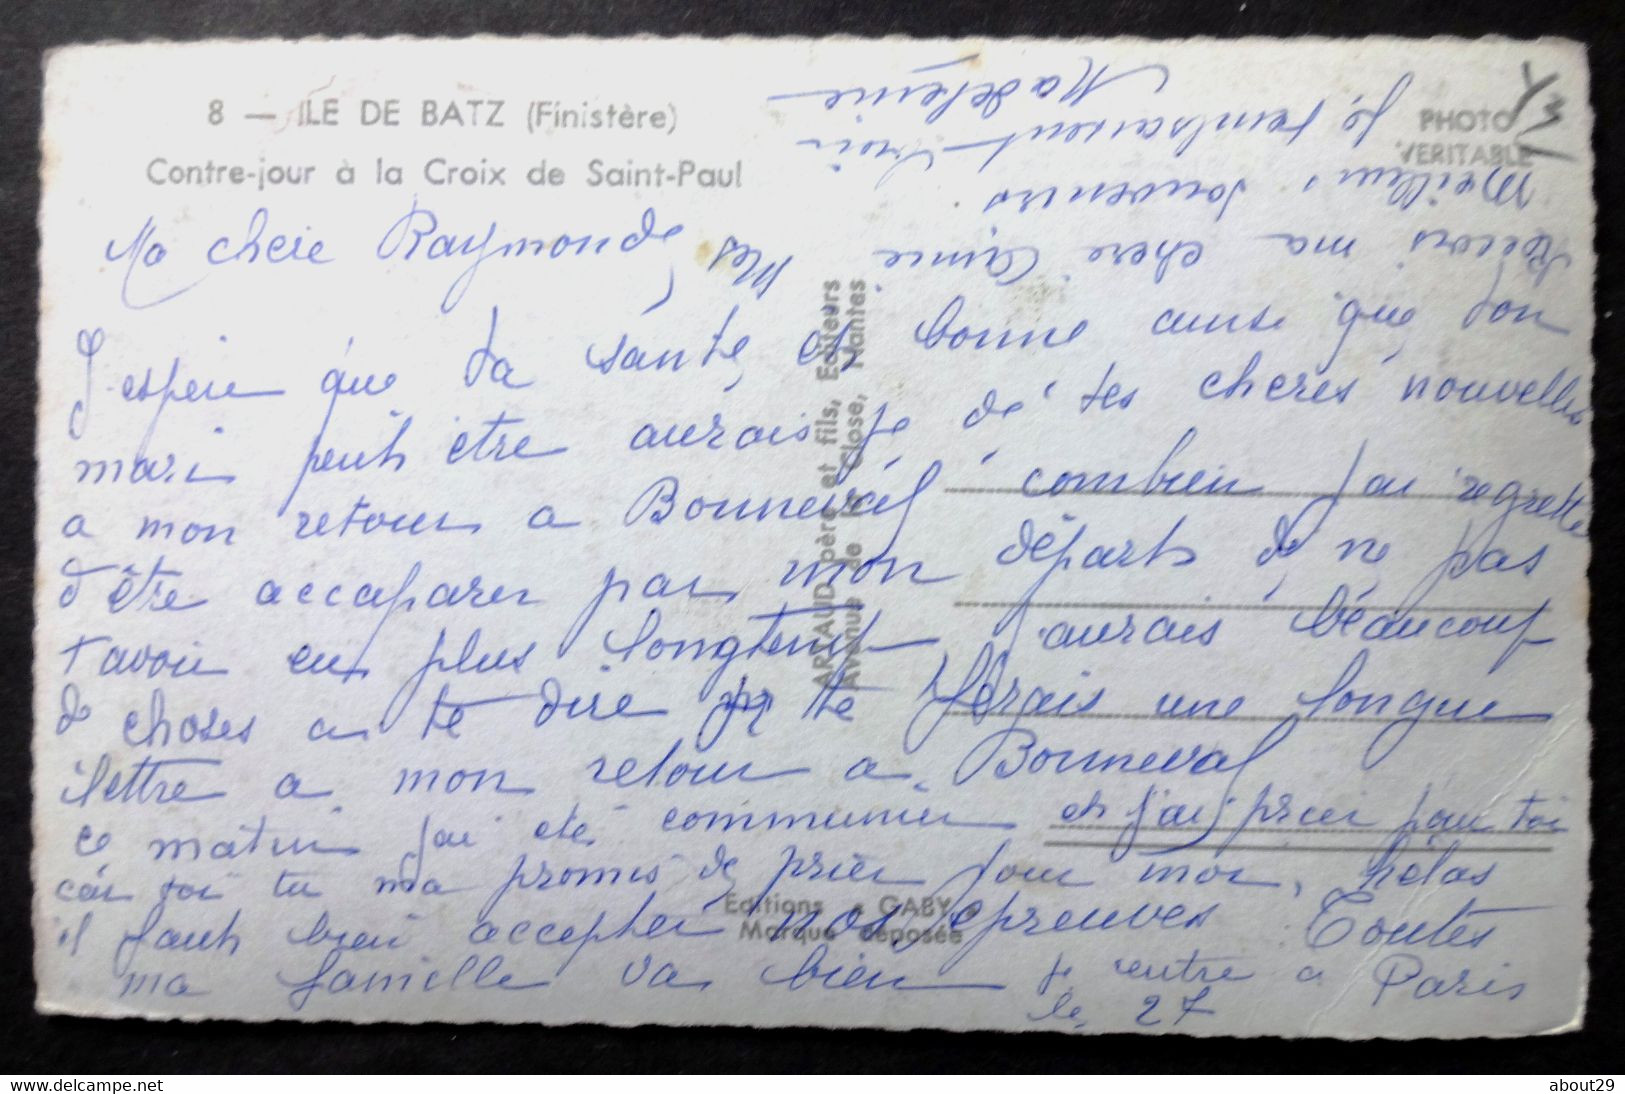 8 — ILE DE BATZ (Finistère)
Contre-jour à la Croix de Saint-Paul
PHOTO
VERITABLE
ARTAUD père et fils, Editeurs
Avenue de la Close, Nantes
Editions GABY
Marque déposée
Ma chere Raymonde,
J'espere que ta santé es bonne ainsi que ton
mari peut être aurais je de tes cheres nouvelles
a mon retour a Bonneval combien j'ai regretté
d'être accaparer par mon départ de ne pas
t'avoir eu plus longtemps j'aurais beaucoup
de choses a te dire je te ferais une longue
lettre a mon retour a Bonneval
ce matin j'ai été communier et j'ai prier pour toi
car toi tu ma promis de prier pour moi, hélas
il faut bien accepter nos epreuves Toutes
ma famille va bien je rentre a Paris
le 27
Mes
ma chere Amie
Meilleurs souvenirs
Madeleine
about29